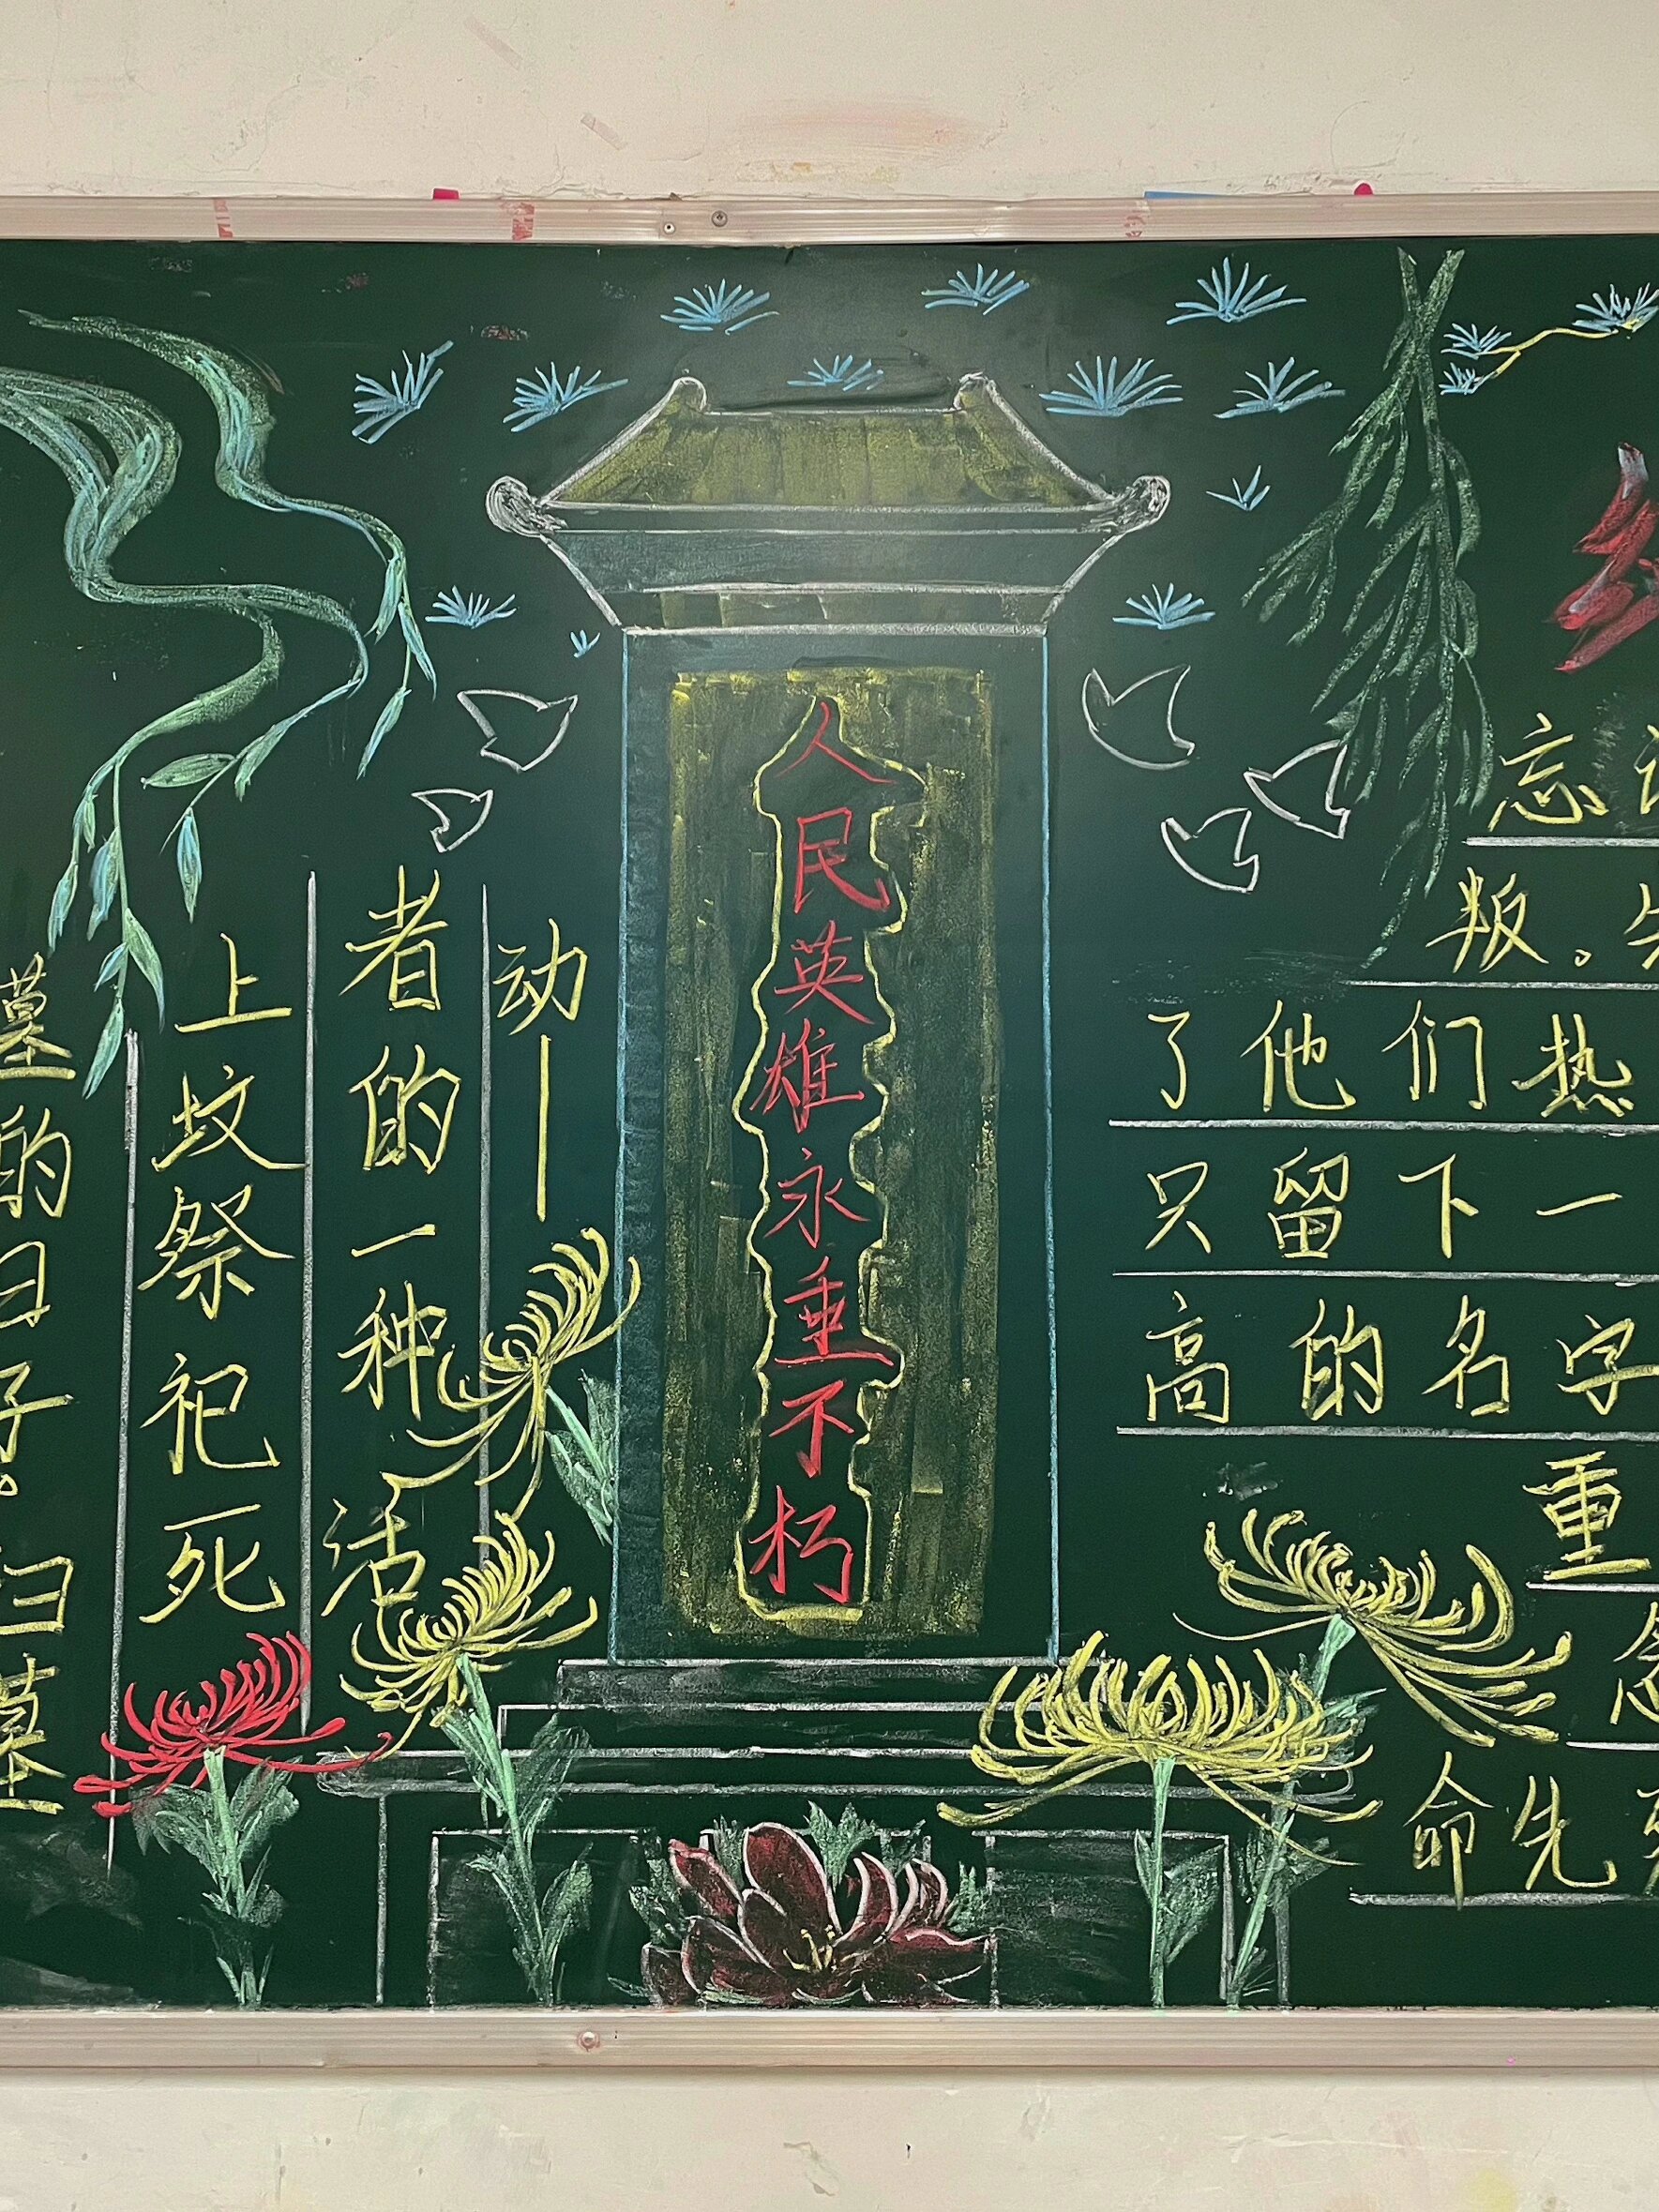 墓的日子。扫墓
上坟祭祀死
者的一种活
动—
人民英雄永垂不朽
忘
叛。
了他们热
只留下一
高的名字
重
命先